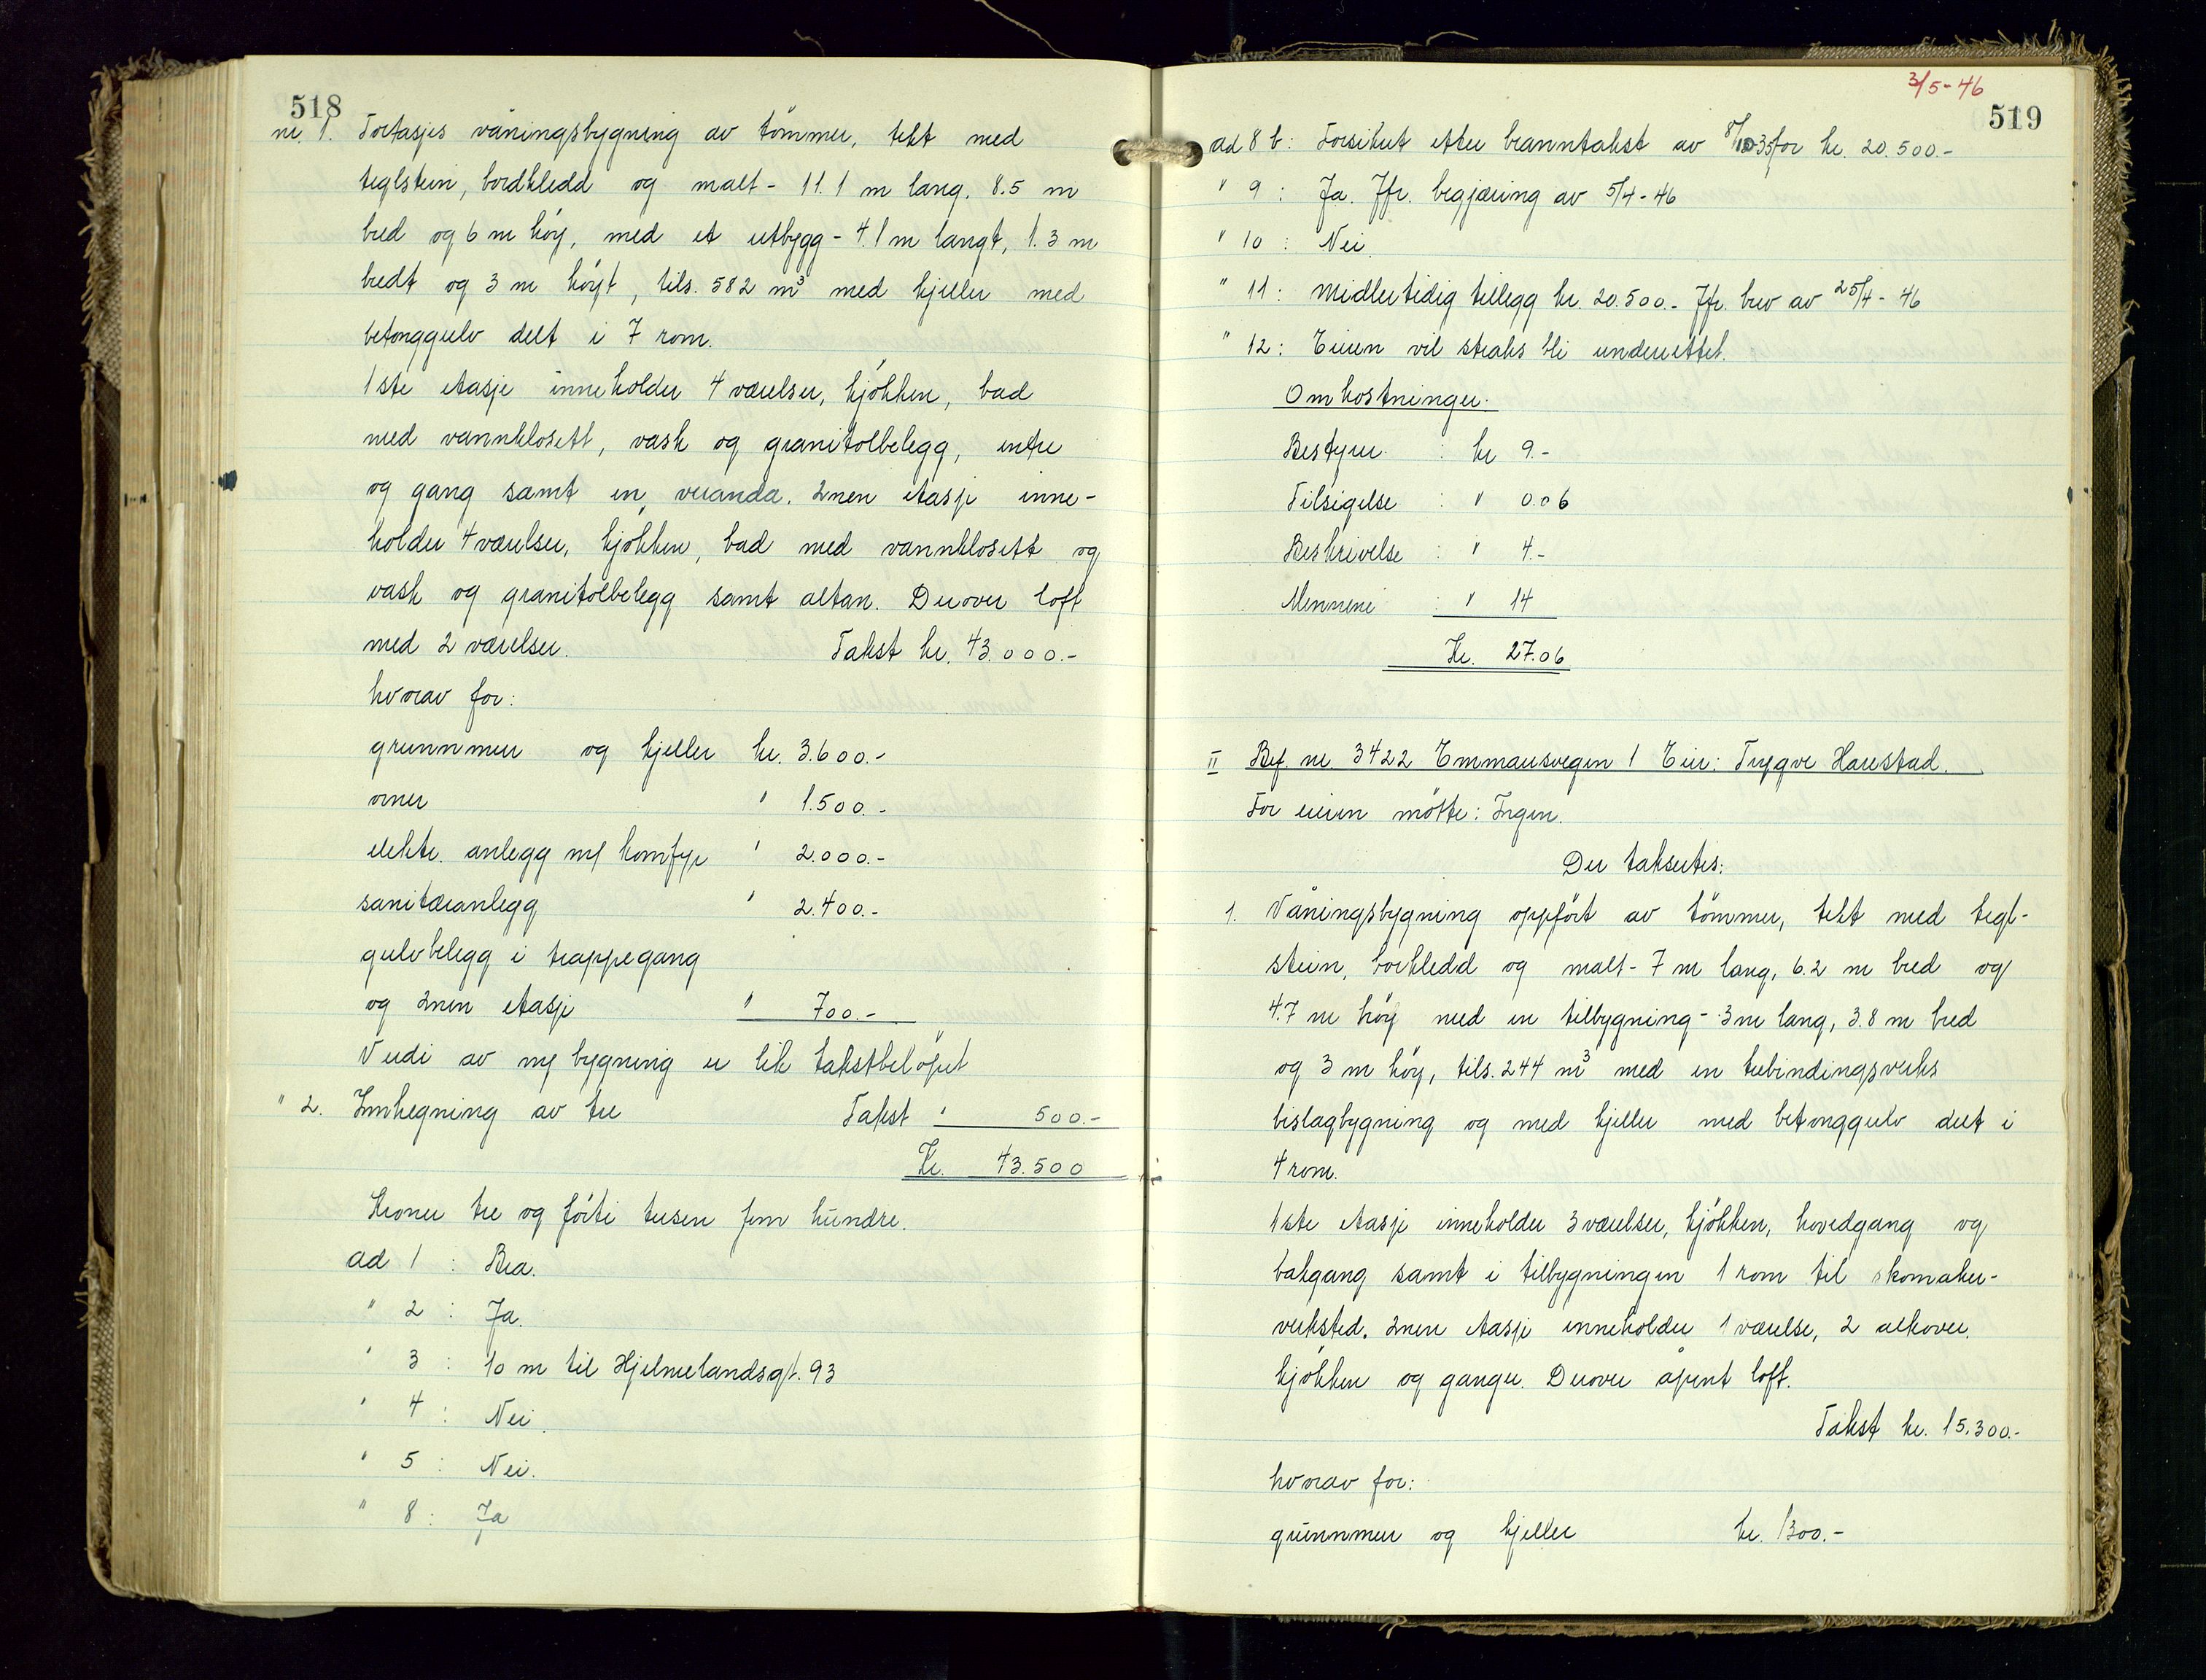 518
nr. 1. Toetasjes våningsbygning av tömmer, tekt med
teglstein, bordkledd og malt - 11.1 m lang. 8.5 m
bred og 6 m höy, med et utbygg - 4.1 m langt, 1.3 m
bredt og 3 m höyt, tils. 582 m³ med kjeller med
betonggulv delt i 7 rom.
1ste etasje inneholder 4 værelser, kjökken, bad
med vannklosett, vask og granitolbelegg, entre
og gang samt en veranda. 2nen etasje inne-
holder 4 værelser, kjökken, bad med vannklosett og
vask og granitolbelegg samt altan. Derover loft
med 2 værelser. Takst kr. 43.000.-
hvorav for:
grunnmur og kjeller kr. 3.600.-
ovner " 1.500.-
elektr. anlegg m/ komfyr " 2.000.-
sanitæranlegg " 2.400.-
gulvbelegg i trappegang
og 2nen etasje " 700.-
Verdi av ny bygning er lik takstbelöpet
" 2. Innhegning av tre Takst " 500.-
Kr. 43.500
Kroner tre og förti tusen fem hundre.
ad 1 : Bra.
" 2 : Ja.
" 3 : 10 m til Hjelmelandsgt. 93
" 4 : Nei.
" 5 : Nei.
" 8 : Ja
3/5-46
519
ad 8 b: Forsikret etter branntakst av 8/10-35 for kr. 20.500.-
" 9 : Ja. Jfr. begjæring av 5/4-46
" 10 : Nei.
" 11 : Midlertidig tillegg kr. 20.500.- Jfr. brev av 25/4-46
" 12 : Eieren vil straks bli underrettet.
Omkostninger.
Bestyrer : kr 9.-
Tilsigelse : " 0.06
Beskrivelse : " 4.-
Mennene : " 14
Kr. 27.06
II Bef. nr. 3422 Emmausvegen 1 Eier: Trygve Harestad.
For eieren mötte: Ingen.
Der takseres:
1. Våningsbygning oppfört av tömmer, tekt med tegl-
stein, borkledd og malt - 7 m lang, 6.2 m bred og
4.7 m höy med en tilbygning - 3 m lang, 3.8 m bred
og 3 m höy, tils. 244 m³ med en trebindingsverks
bislagbygning og med kjeller med betonggulv delt i
4 rom.
1ste etasje inneholder 3 værelser, kjökken, hovedgang og
bakgang samt i tilbygningen 1 rom til skomaker-
verksted. 2nen etasje inneholder 1 værelse, 2 alkover,
kjökken og ganger. Derover åpent loft.
Takst kr. 15.300.-
hvorav for:
grunnmur og kjeller kr. 1300.-